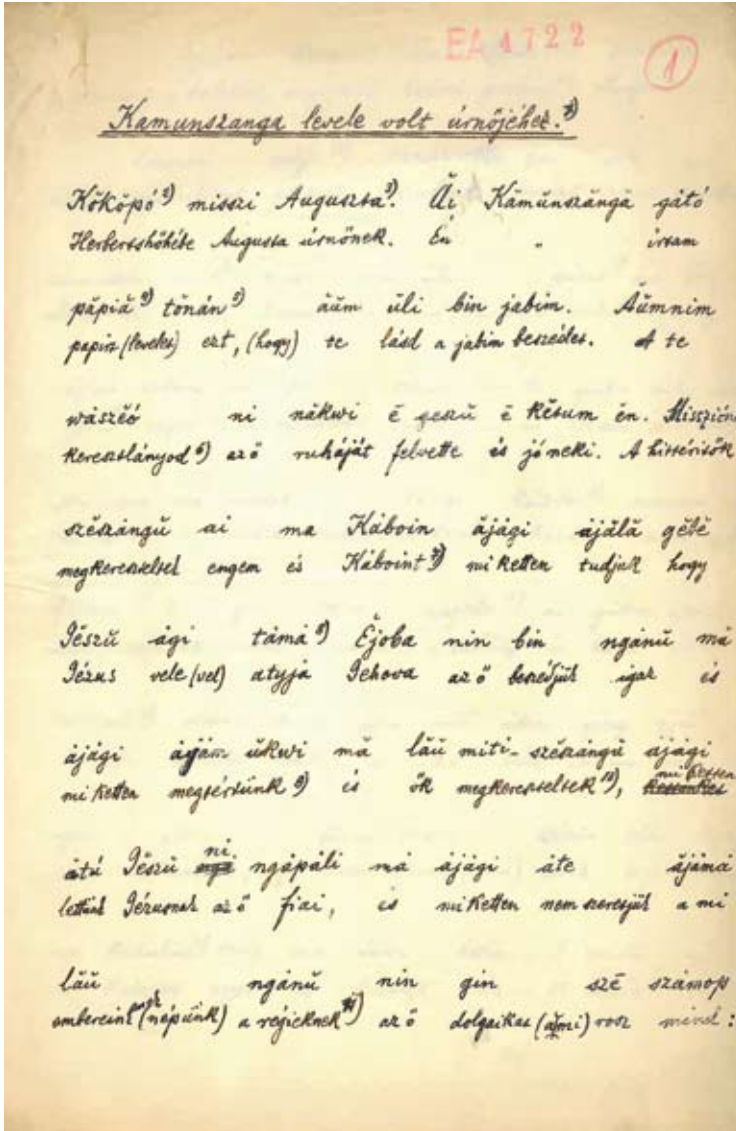 EA 4722
1
Kamunszanga levele volt úrnőjéhez. 1)
Kōkōpó 2) misszi Auguszta 3). Āi Kāmūnszāngā gátó
Herbertshöhébe Augusta úrnőnek. Én " írtam
pāpiā 4) tōnān 5) āūm ūli bin jabim. Āūmnim
papírt (levelet) ezt, (hogy) te lásd a jabim beszédet. A te
wászēó ni nākwi ē ē kētum ēn.
keresztlányod 6) az ő ruháját felvette és jó neki. A hittérítők
szēszāngū ai ma Káboin ājági ājālā gēbē
megkereszteltek engem és Káboint 7) mi ketten tudjuk hogy
Jēszū ági támá 8) Ējoba nin bin ngánū má
Jézus vele (vel) atyja Jehova az ő beszédjük igaz és
ájági ájám ūkwi mā lāū miti-szēszāngū ájági
mi ketten megtértünk 9) és ők megkereszteltek 10), mi ketten
átú Jēszū ni ngápáli má ájági áte ájámá
lettünk Jézusnak az ő fiai, és mi ketten nem szeretjük a mi
lāū ngánū nin gin szē számop
embereink (népünk) a régieknek 11) az ő dolgaikat (ami) rosz mind: